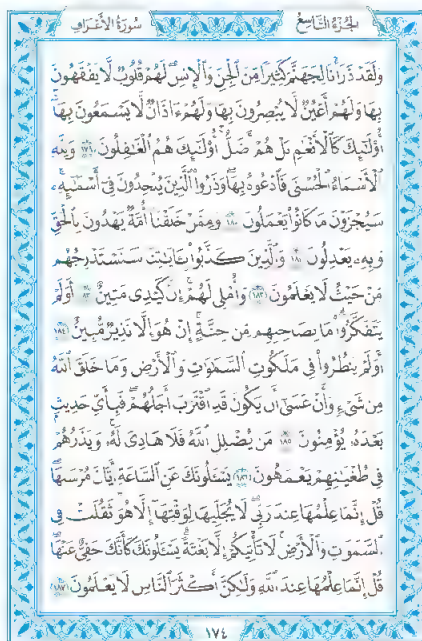 الجزء التاسع سورة الأعراف
وَلَقَدْ ذَرَأْنَا لِجَهَنَّمَ كَثِيرًا مِّنَ ٱلْجِنِّ وَٱلْإِنسِ لَهُمْ قُلُوبٌ لَّا يَفْقَهُونَ
بِهَا وَلَهُمْ أَعْيُنٌ لَّا يُبْصِرُونَ بِهَا وَلَهُمْ ءَاذَانٌ لَّا يَسْمَعُونَ بِهَآ
أُو۟لَٰٓئِكَ كَٱلْأَنْعَٰمِ بَلْ هُمْ أَضَلُّ أُو۟لَٰٓئِكَ هُمُ ٱلْغَٰفِلُونَ ١٧٩ وَلِلَّهِ
ٱلْأَسْمَآءُ ٱلْحُسْنَىٰ فَٱدْعُوهُ بِهَا وَذَرُوا۟ ٱلَّذِينَ يُلْحِدُونَ فِىٓ أَسْمَٰٓئِهِۦ
سَيُجْزَوْنَ مَا كَانُوا۟ يَعْمَلُونَ ١٨٠ وَمِمَّنْ خَلَقْنَآ أُمَّةٌ يَهْدُونَ بِٱلْحَقِّ
وَبِهِۦ يَعْدِلُونَ ١٨١ وَٱلَّذِينَ كَذَّبُوا۟ بِـَٔايَٰتِنَا سَنَسْتَدْرِجُهُم
مِّنْ حَيْثُ لَا يَعْلَمُونَ ١٨٢ وَأُمْلِى لَهُمْ إِنَّ كَيْدِى مَتِينٌ ١٨٣ أَوَلَمْ
يَتَفَكَّرُوا۟ مَا بِصَاحِبِهِم مِّن جِنَّةٍ إِنْ هُوَ إِلَّا نَذِيرٌ مُّبِينٌ ١٨٤
أَوَلَمْ يَنظُرُوا۟ فِى مَلَكُوتِ ٱلسَّمَٰوَٰتِ وَٱلْأَرْضِ وَمَا خَلَقَ ٱللَّهُ
مِن شَىْءٍ وَأَنْ عَسَىٰٓ أَن يَكُونَ قَدِ ٱقْتَرَبَ أَجَلُهُمْ فَبِأَىِّ حَدِيثٍۭ
بَعْدَهُۥ يُؤْمِنُونَ ١٨٥ مَن يُضْلِلِ ٱللَّهُ فَلَا هَادِىَ لَهُۥ وَيَذَرُهُمْ
فِى طُغْيَٰنِهِمْ يَعْمَهُونَ ١٨٦ يَسْـَٔلُونَكَ عَنِ ٱلسَّاعَةِ أَيَّانَ مُرْسَىٰهَا
قُلْ إِنَّمَا عِلْمُهَا عِندَ رَبِّى لَا يُجَلِّيهَا لِوَقْتِهَآ إِلَّا هُوَ ثَقُلَتْ فِى
ٱلسَّمَٰوَٰتِ وَٱلْأَرْضِ لَا تَأْتِيكُمْ إِلَّا بَغْتَةً يَسْـَٔلُونَكَ كَأَنَّكَ حَفِىٌّ عَنْهَا
قُلْ إِنَّمَا عِلْمُهَا عِندَ ٱللَّهِ وَلَٰكِنَّ أَكْثَرَ ٱلنَّاسِ لَا يَعْلَمُونَ ١٨٧
١٧٤